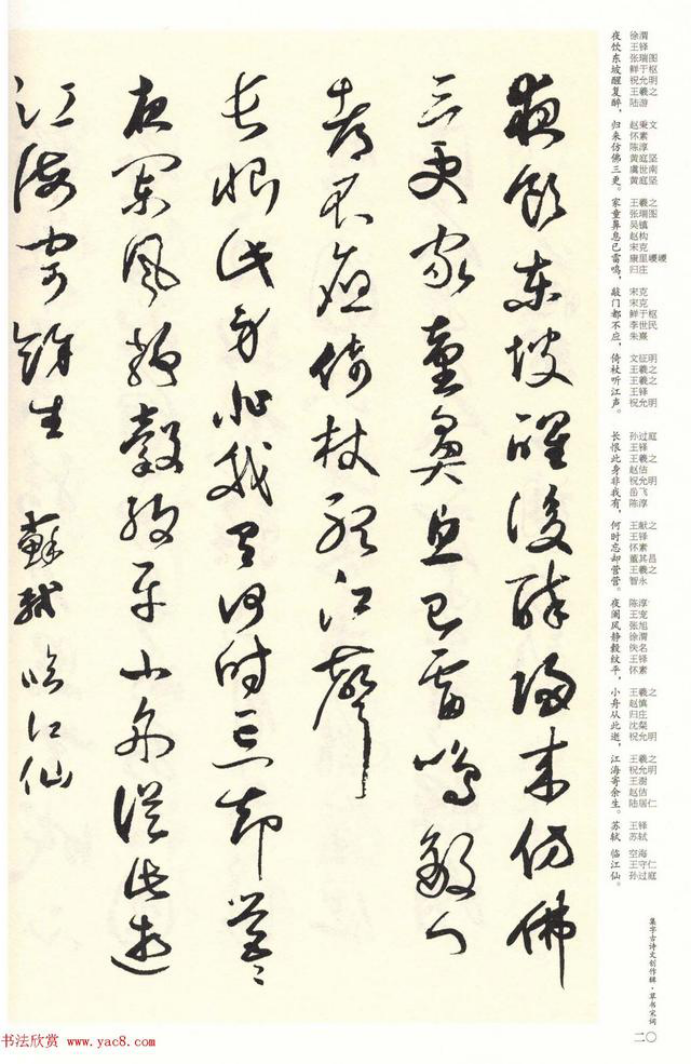 徐渭 王铎 张瑞图 鲜于枢 祝允明 王羲之 陆游 赵秉文 怀素 陈淳 黄庭坚 虞世南 黄庭坚 王羲之 张瑞图 吴镇 赵构 宋克 康里巎巎 归庄 宋克 宋克 鲜于枢 李世民 朱熹 文征明 王羲之 王羲之 王铎 祝允明 孙过庭 王铎 王羲之 赵佶 祝允明 岳飞 陈淳 王献之 王铎 怀素 董其昌 王羲之 智永 陈淳 王宠 张旭 徐渭 佚名 王铎 怀素 王羲之 赵慎 归庄 沈粲 祝允明 王羲之 祝允明 王澍 赵佶 陆居仁 王铎 苏轼 空海 王守仁 孙过庭
夜饮东坡醒复醉，归来仿佛三更。家童鼻息已雷鸣，敲门都不应，倚杖听江声。 长恨此身非我有，何时忘却营营。夜阑风静縠纹平，小舟从此逝，江海寄余生。 苏轼 临江仙。
集字古诗文创作辑·草书宋词
二〇
夜飲東坡醒復醉歸來仿佛
三更家童鼻息已雷鳴敲門
都不應倚杖聽江聲
長恨此身非我有何時忘却營〻
夜闌風靜縠紋平小舟從此逝
江海寄餘生 蘇軾 臨江仙
书法欣赏 www.yac8.com